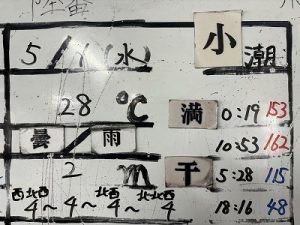 5/1(水) 小潮
28℃ 満 0:19 153
曇/雨 10:53 162
2m 干 5:28 115
西 北西 北西 北
4~4~4~4 18:16 48